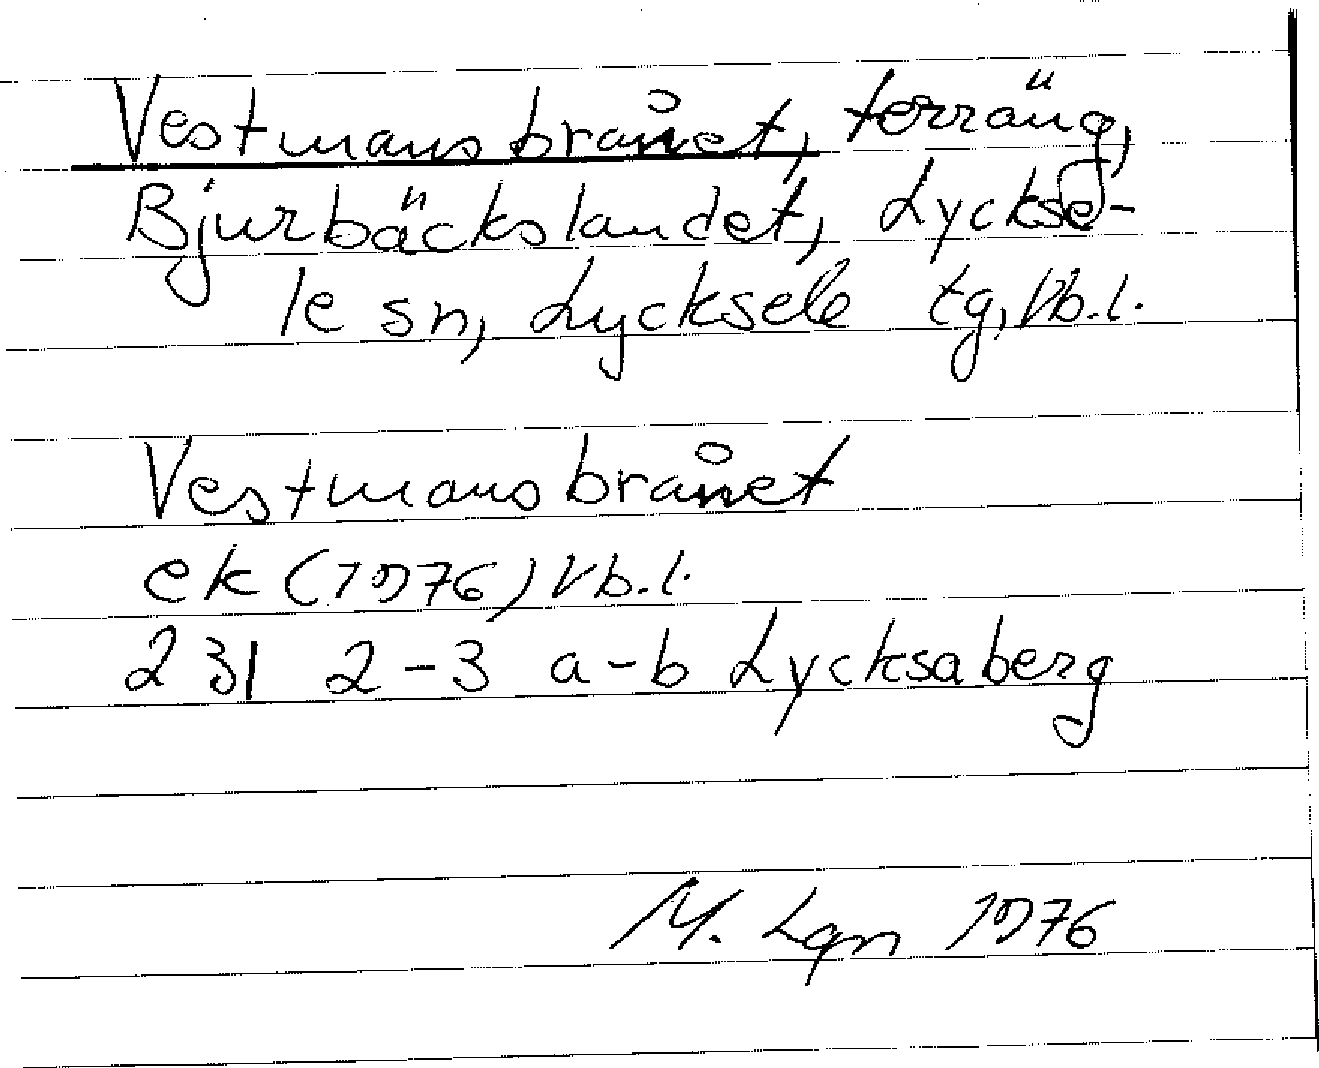 Vestmansbrånet, terräng,
Bjurbäckslandet, Lyckse-
le sn, Lycksele tg, Vb.l.
Vestmansbrånet
ek (1976) Vb.l.
23I 2-3 a-b Lycksaberg
M. Lgn 1976